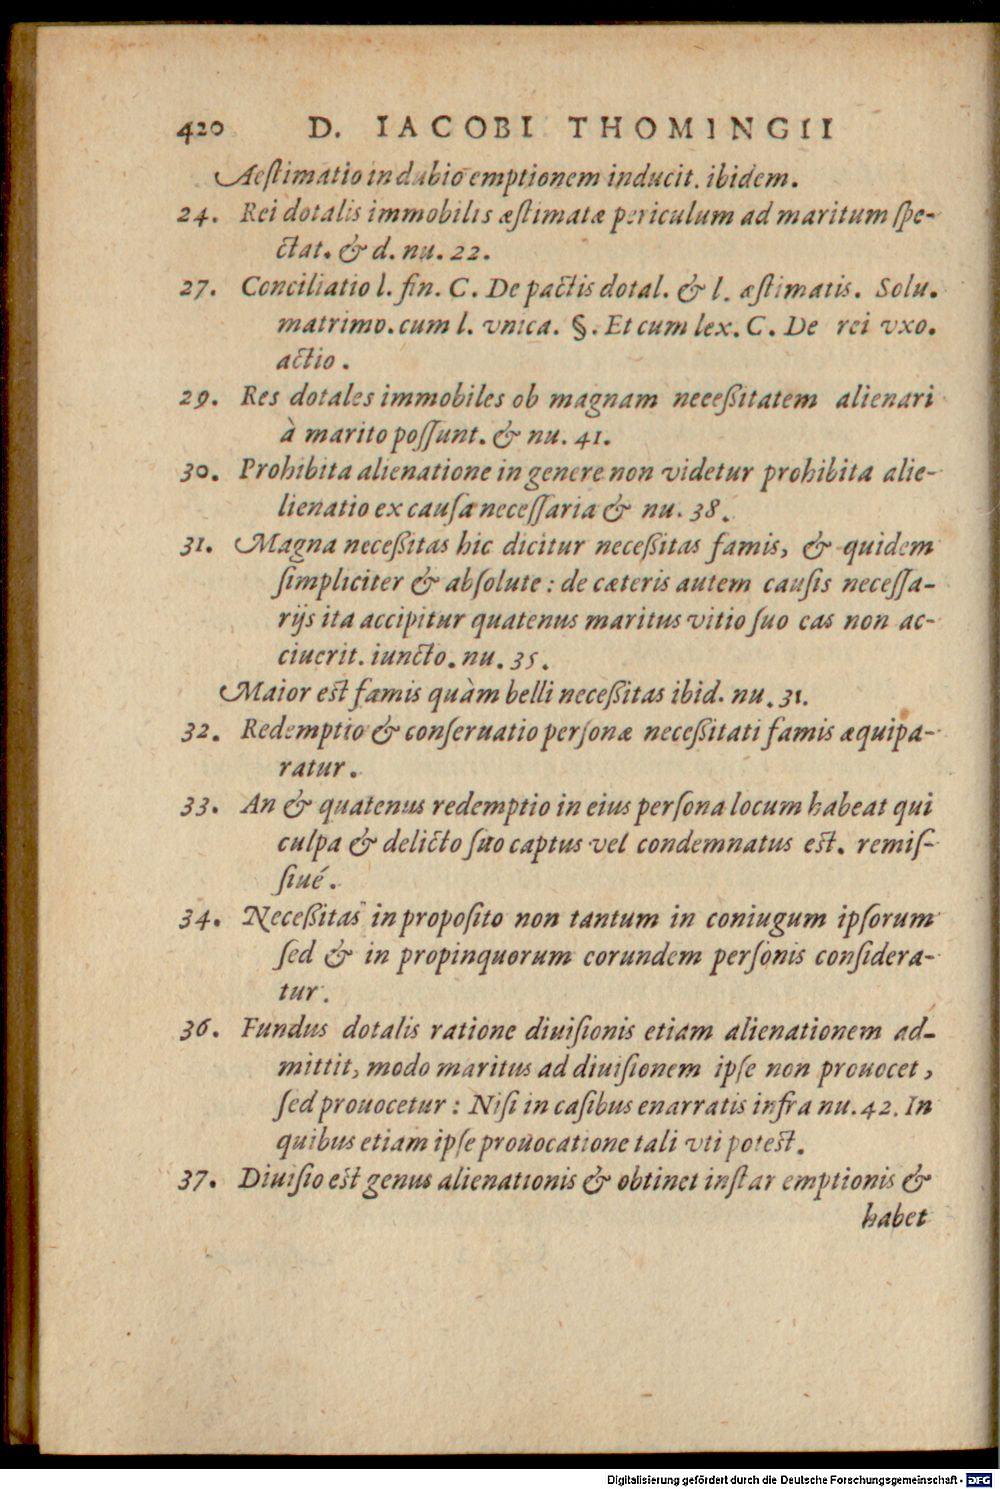 420 D. IACOBI THOMINGII
Aeſtimatio in dubio emptionem inducit. ibidem.
24. Rei dotalis immobilis æſtimatæ periculum ad maritum ſpe-
ctat. & d. nu. 22.
27. Conciliatio l. fin. C. De pactis dotal. & l. æſtimatis. Solu.
matrimo. cum l. vnica. §. Et cum lex. C. De rei vxo.
actio.
29. Res dotales immobiles ob magnam neceßitatem alienari
à marito poſſunt. & nu. 41.
30. Prohibita alienatione in genere non videtur prohibita alie-
lienatio ex cauſa neceſſaria & nu. 38.
31. Magna neceßitas hic dicitur neceßitas famis, & quidem
ſimpliciter & abſolute: de cæteris autem cauſis neceſſa-
rijs ita accipitur quatenus maritus vitio ſuo eas non ac-
ciuerit. iuncto. nu. 35.
Maior eſt famis quàm belli neceßitas ibid. nu. 31.
32. Redemptio & conſeruatio perſonæ neceßitati famis æquipa-
ratur.
33. An & quatenus redemptio in eius perſona locum habeat qui
culpa & delicto ſuo captus vel condemnatus eſt. remiſ-
ſiué.
34. Neceßitas in propoſito non tantum in coniugum ipſorum
ſed & in propinquorum eorundem perſonis conſidera-
tur.
36. Fundus dotalis ratione diuiſionis etiam alienationem ad-
mittit, modo maritus ad diuiſionem ipſe non prouocet,
ſed prouocetur: Niſi in caſibus enarratis infra nu. 42. In
quibus etiam ipſe prouocatione tali vti poteſt.
37. Diuiſio eſt genus alienationis & obtinet inſtar emptionis &
habet
Digitalisierung gefördert durch die Deutsche Forschungsgemeinschaft - DFG